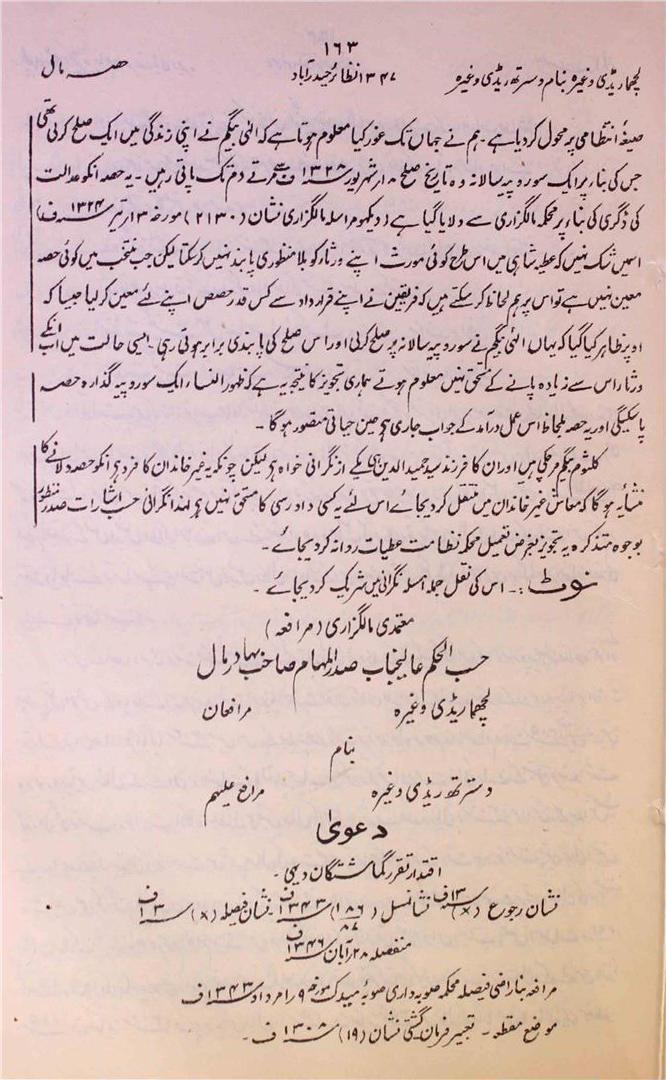 ۱۶۳
لچھما ریڈی وغیرہ بنام دسرتھ ریڈی وغیرہ ۱۳۴۷ نظائر حیدرآباد حصہ مال
صیغۂ انتظامی پر محول کر دیا ہے۔ ہم نے جہاں تک غور کیا معلوم ہوتا ہے کہ الٰہی بیگم نے اپنی زندگی میں ایک صلح کر لی تھی
جس کی بناء پر ایک سو روپیہ سالانہ وہ تاریخ صلح ۸ ار شہریور ۱۳۲۸ ف سے مرتے دم تک پاتی رہیں۔ یہ حصہ انکو عدالت
کی ڈگری کی بناء پر محکمہ مالگزاری سے دلایا گیا ہے (دیکھو مراسلہ مالگزاری نشان (۲۱۳۰) مورخہ ۱۳ ار تیر ۱۳۲۴ ف)
اسمیں شک نہیں کہ عطیہ شاہی میں اس طرح کوئی مورث اپنے ورثاء کو بلا منظوری پابند نہیں کر سکتا لیکن جب منتخب میں کوئی حصہ
معین نہیں ہے تو اس پر ہم لحاظ کر سکتے ہیں کہ فریقین نے اپنے قرارداد سے کس قدر حصص اپنے لئے معین کر لیا جیسا کہ
اوپر ظاہر کیا گیا کہ یہاں الٰہی بیگم نے سو روپیہ سالانہ پر صلح کر لی اور اس صلح کی پابندی برابر ہوتی رہی۔ ایسی حالت میں اب انکے
ورثاء اس سے زیادہ پانے کے مستحق نہیں معلوم ہوتے ہماری تجویز کا نتیجہ یہ ہے کہ ظہور النساء ایک سو روپیہ گذارہ حصہ
پا سکیگی اور یہ حصہ بلحاظ اس عمل درآمد کے جو اب جاری ہے حین حیاتی متصور ہوگا۔
کلثوم بیگم مرچکی ہیں اور ان کا فرزند سید حمید الدین نگرانی خواہ ہے لیکن چونکہ یہ غیر خاندان کا فرد ہے انکو حصہ دلانے کا
منشا یہ ہوگا کہ معاش غیر خاندان میں منتقل کر دیجائے اس لئے یہ کسی دادرسی کا مستحق نہیں ہے لہذا نگرانی حسب اشارات صدر منظور
بوجوہ متذکرہ یہ تجویز بغرض تعمیل محکمہ نظامت عطیات روانہ کر دیجائے۔
نوٹ :۔ اس کی نقل جملہ امسلہ نگرانی میں شریک کر دیجائے۔
معتمدی مالگزاری (مرافعہ)
حسب الحکم عالیجناب صدر المہام صاحب بہادر مال
لچھما ریڈی وغیرہ مرافعان
بنام
دسرتھ ریڈی وغیرہ مرافع علیہم
دعویٰ
اقتدار تقرر گماشتگان دیہی۔
نشان رجوع (×) ۱۳ ف نشانسل (۱۸۶/۸۷) ۱۳۴۳ ف نشان فیصلہ (×) ۱۳ ف
منفصلہ ۲۸ ر آبان ۱۳۴۶ ف
مرافعہ بناراضی فیصلہ محکمہ صوبہ داری صوبہ میدک مورخہ ۹ ر امرداد ۱۳۴۳ ف
موضع مقطعہ۔ تعبیر فرمان گشتی نشان (۱۹) ۱۳۰۸ ف۔